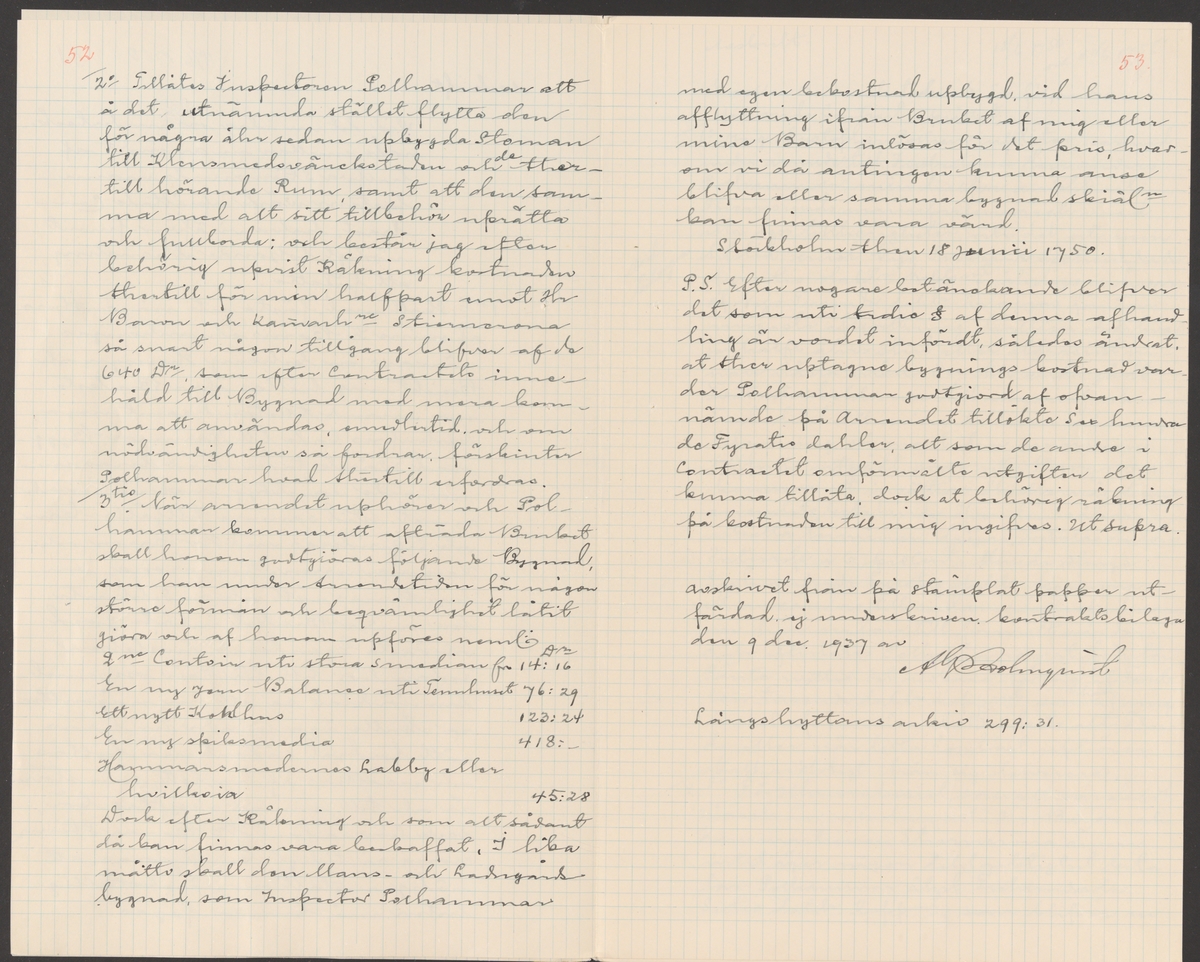 52
2º Tillåtes Inspectoren Polhammar att
å det utnämnda stället flytta den
för några åhr sedan upbygda Stoman
till Klensmedsvärckstaden och de ther-
till hörande Rum, samt att den sam-
ma med alt sitt tillbehör uprätta
och fullborda; och består jag efter
behörig upvist Räkning kostnaden
thertill för min halfpart emot Hr
Baron och Kam̄arh:re Stierncrona
så snart någon tillgång blifver af de
640 Dr, som efter Contractets inne-
håld till Bygnad med mera kom-
ma att användas, emedlertid och om
nödvändigheten så fordrar, förskiuter
Polhammar hvad thertill erfordras.
3tio När arrendet uphörer och Pol-
hammar kommer att afträda Bruket
skall honom godtgiöras följande Bygnad,
som han under Arrendetiden för någon
större förmån och beqvämlighet låtit
giöra och af honom upföres neml:
Dr
2ne Contoir uti stora smedian för 14: 16
En ny Jern Balance uti Tennhuset 76: 29
Ett nytt Kohlhus 123: 24
En ny spiksmedia 418: -
Hammarsmedernes Labby eller
hvilkoia 45:28
Dock efter Räkning och som alt sådant
då kan finnas vara beskaffat. I lika
måtto skall den Mans- och Ladugårds
bygnad, som Inspector Polhammar
53.
med egen bekostnad upbygd, vid hans
afflyttning ifrån Bruket af mig eller
mine Barn inlösas för det pris, hvar-
om vi då antingen kunna anse
blifva eller samma bygnad skiäl:n
kan finnas vara värd.
Stockholm then 18 Junii 1750.
P.S. Efter nogare betänckande blifver
det som uti tredie § af denna afhand-
ling är vordet infördt, således ändrat,
at ther uptagne bygnings kostnad var-
der Polhammar godtgiord af ofvan-
nämde på Arrendet tillökte Sex hundra
de Fyratio dahler, alt som de andre i
Contractet omförmälte utgiften det
kunna tillåta, dock at behörig räkning
på kostnaden till mig ingifves. Ut supra.
avskrivet från på stämplat papper ut-
färdad, ej underskriven, kontraktsbilaga
den 9 dec. 1937 av
Holmquist
Långshyttans arkiv 299: 31.